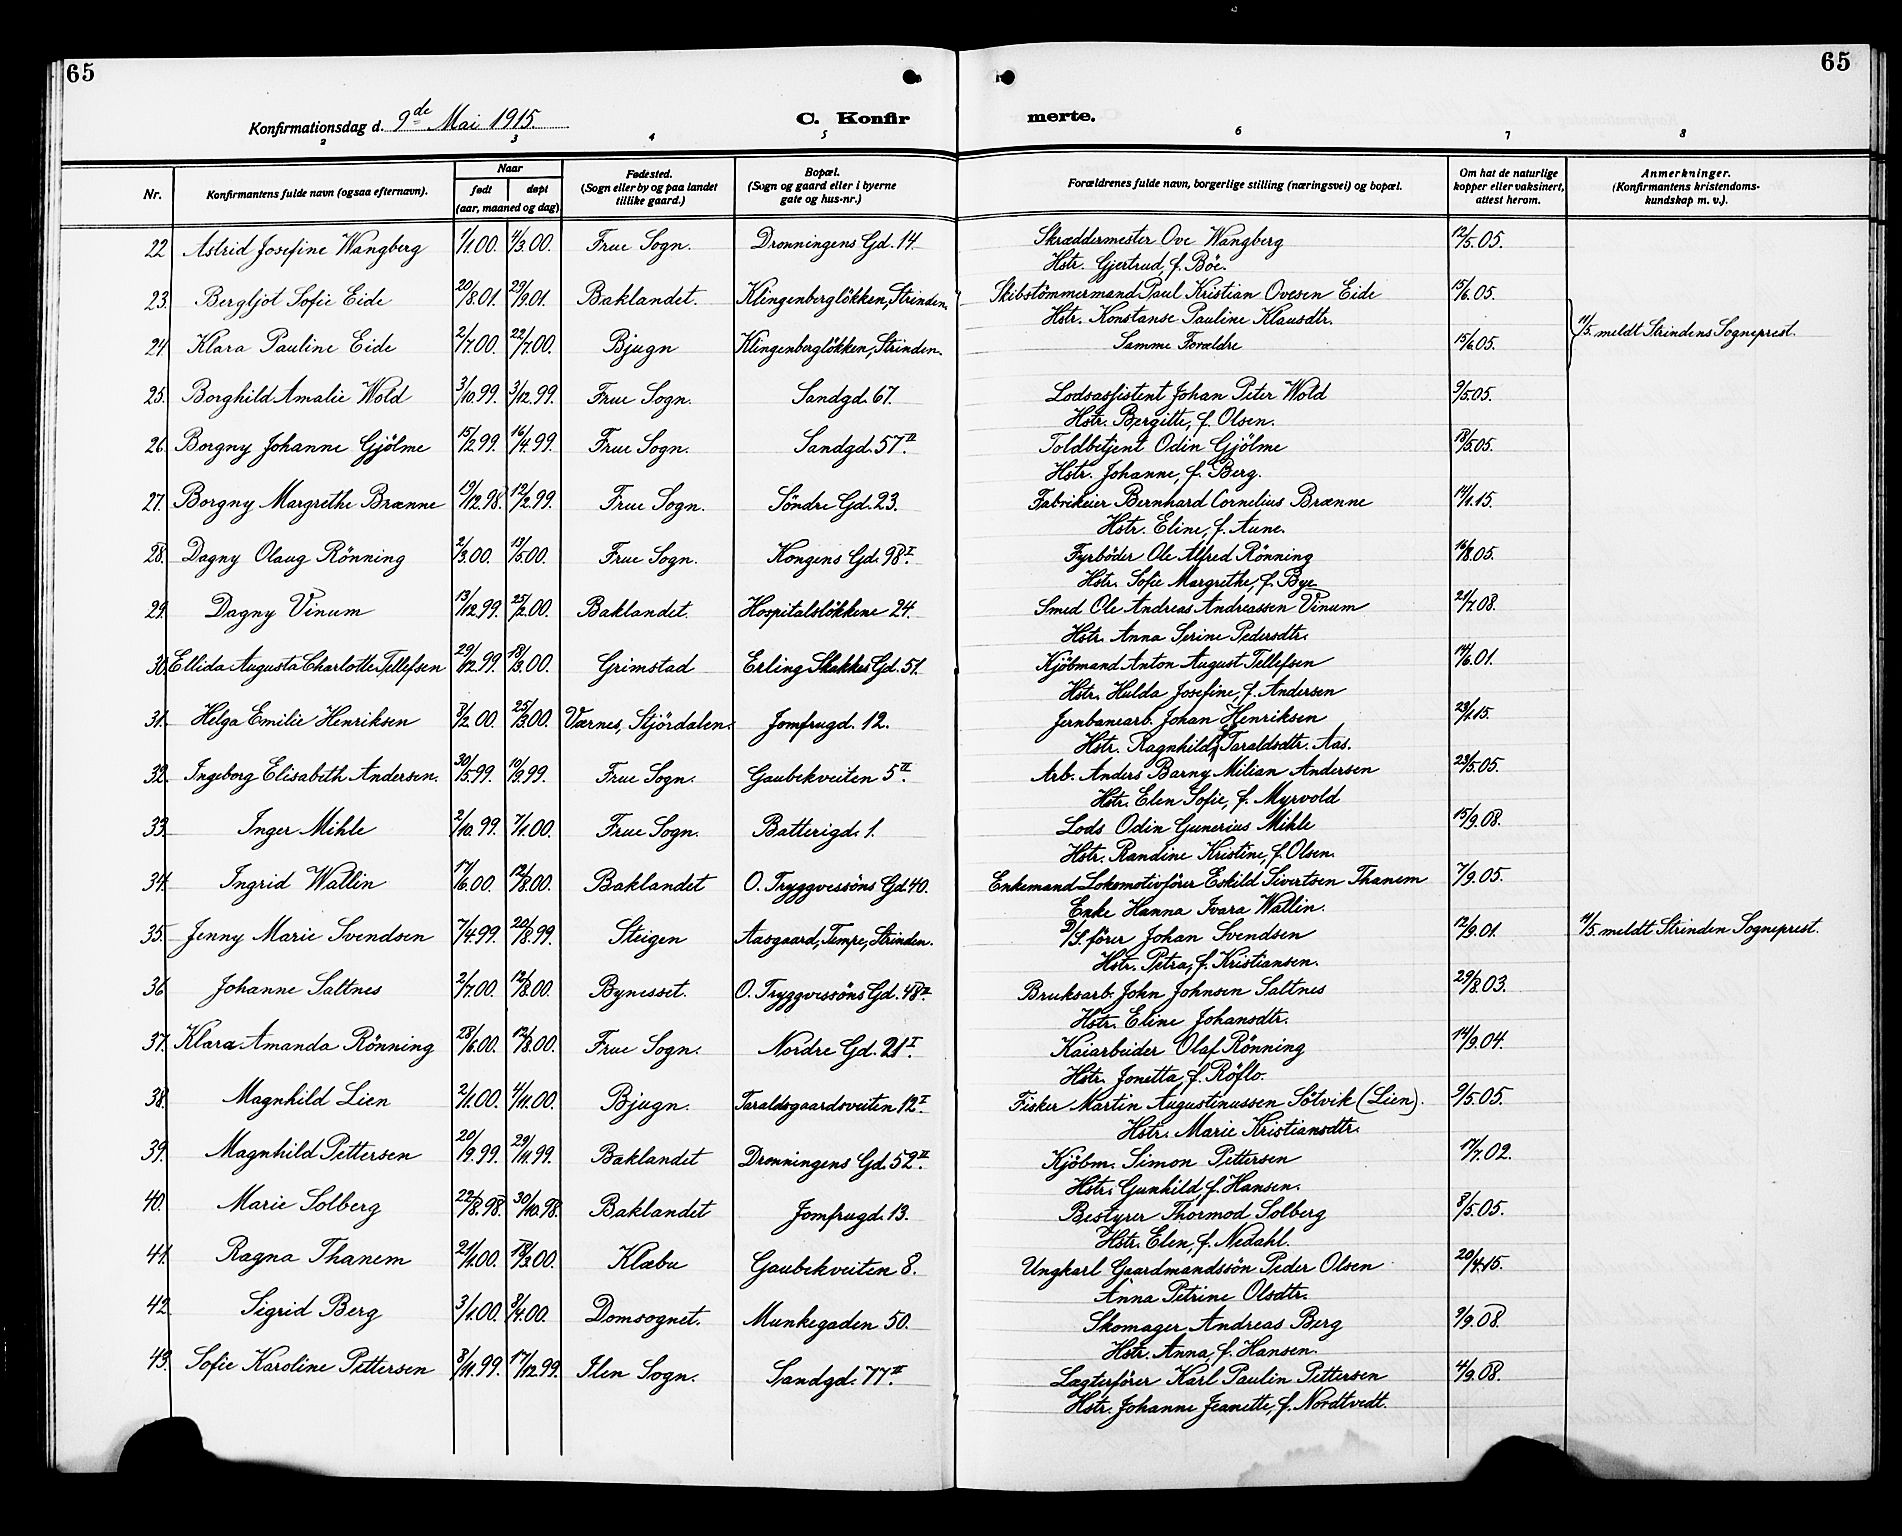 65
65
Konfirmationsdag d. 9de Mai 1915
C. Konfirmerte.
2 3 4 5 6 7 8
Nr. Konfirmantens fulde navn (ogsaa efternavn). Naar født døpt (aar, maaned og dag) Fødested. (Sogn eller by og paa landet tillike gaard.) Bopæl. (Sogn og gaard eller i byerne gate og hus-nr.) Forældrenes fulde navn, borgerlige stilling (næringsvei) og bopæl. Om hat de naturlige kopper eller vaksinert, attest herom. Anmerkninger. (Konfirmantens kristendoms-kundskap m. v.).
22. Astrid Josefine Wangberg 1/1.00. 4/3.00. Frue Sogn. Dronningens Gd. 14. Skræddermester Ove Wangberg 12/5.05.
Hstr. Gjertrud, f. Böe.
23. Bergljot Sofie Eide 20/8.01. 29/9.01. Baklandet. Klingenberglökken, Strinden. Skibstömmermand Paul Kristian Ovesen Eide 15/6.05.
Hstr. Konstanse Pauline Klausdtr.
24. Klara Pauline Eide 2/7.00. 22/7.00. Bjugn Klingenberglökken, Strinden. Samme Forældre 15/6.05. 11/5. meldt Strindens Sogneprest.
25. Borghild Amalie Wold 3/10.99. 3/12.99. Frue Sogn. Sandgd. 67. Lodsassistent Johan Peter Wold 9/5.05.
Hstr. Bergitte, f. Olsen.
26. Borgny Johanne Gjölme 15/2.99. 16/4.99. Frue Sogn. Sandgd. 57 II. Toldbetjent Odin Gjölme 18/5.05.
Hstr. Johanne, f. Berg.
27. Borgny Margrethe Brænne 19/12.98. 12/2.99. Frue Sogn. Söndre Gd. 23. Fabrikeier Bernhard Cornelius Brænne 14/1.15.
Hstr. Eline, f. Aune.
28. Dagny Olaug Rönning 2/3.00. 13/5.00. Frue Sogn. Kongens Gd. 98 I. Fyrböder Ole Alfred Rönning 16/8.05.
Hstr. Sofie Margrethe, f. Bye
29. Dagny Vinum 13/12.99. 25/2.00. Baklandet. Hospitalslökkene 24. Smed Ole Andreas Andreassen Vinum 21/7.08.
Hstr. Anna Serine Pedersdtr.
30. Ellida Augusta Charlotte Tellefsen 29/12.99. 18/3.00. Grimstad Erling Skakkes Gd. 51. Kjöbmand Anton August Tellefsen 14/6.01.
Hstr. Hulda Josefine, f. Andersen
31. Helga Emilie Henriksen 8/2.00. 25/3.00. Værnes, Stjördalen. Jomfrugd. 12. Jernbanearb. Johan Henriksen 23/1.15.
Hstr. Ragnhild, f. Taraldsdtr. Aas.
32. Ingeborg Elisabeth Andersen. 30/5.99. 10/9.99. Frue Sogn. Gaubekveiten 5 II. Arb. Anders Barny Milian Andersen 23/5.05.
Hstr. Elen Sofie, f. Myrvold
33. Inger Mihle 2/10.99. 7/1.00. Frue Sogn. Batterigd. 1. Lods Odin Gunerius Mihle 15/9.08.
Hstr. Randine Kristine, f. Olsen.
34. Ingrid Wallin 17/6.00. 12/8.00. Baklandet O. Tryggvessöns Gd. 40. Enkemand Lokomotivförer Eskild Sivertsen Thanem 7/9.05.
Enke Hanna Ivara Wallin.
35. Jenny Marie Svendsen 7/4.99. 20/8.99. Steigen Aasgaard, Tempe, Strinden. D/S. förer Johan Svendsen 12/9.01. 11/5. meldt Strinden Sogneprest.
Hstr. Petra, f. Kristiansen.
36. Johanne Saltnes 2/7.00. 12/8.00. Bynesset. O. Tryggvessöns Gd. 48 II. Bruksarb. John Johnsen Saltnes 29/8.03.
Hstr. Eline Johansdtr.
37. Klara Amanda Rönning 28/6.00. 12/8.00. Frue Sogn. Nordre Gd. 21 I. Kaiarbeider Olaf Rönning 14/9.04.
Hstr. Jonetta, f. Röflo.
38. Magnhild Lien 2/1.00. 4/11.00. Bjugn. Taraldsgaardsveiten 12 I. Fisker Martin Augustinussen Sötvik (Lien). 9/5.05.
Hstr. Marie Kristiansdtr.
39. Magnhild Pettersen 20/9.99. 29/11.99. Baklandet Dronningens Gd. 52 II. Kjöbm. Simon Pettersen 17/7.02.
Hstr. Gunhild, f. Hansen.
40. Marie Solberg 22/8.98. 30/10.98. Baklandet Jomfrugd. 13. Bestyrer Thormod Solberg 8/5.05.
Hstr. Elen, f. Nedahl.
41. Ragna Thanem 21/1.00. 18/3.00. Klæbu Gaubekveiten 8. Ungkarl Gaardmandssön Peder Olsen 20/4.15.
Anna Petrine Olsdtr.
42. Sigrid Berg 3/1.00. 8/4.00. Domsognet. Munkegaden 50. Skomager Andreas Berg 9/9.08.
Hstr. Anna, f. Hansen.
43. Sofie Karoline Pettersen 8/11.99. 17/12.99. Ilen Sogn. Sandgd. 77 II. Lægterförer Karl Paulin Pettersen 4/9.08.
Hstr. Johanne Jeanette, f. Nordtvedt.